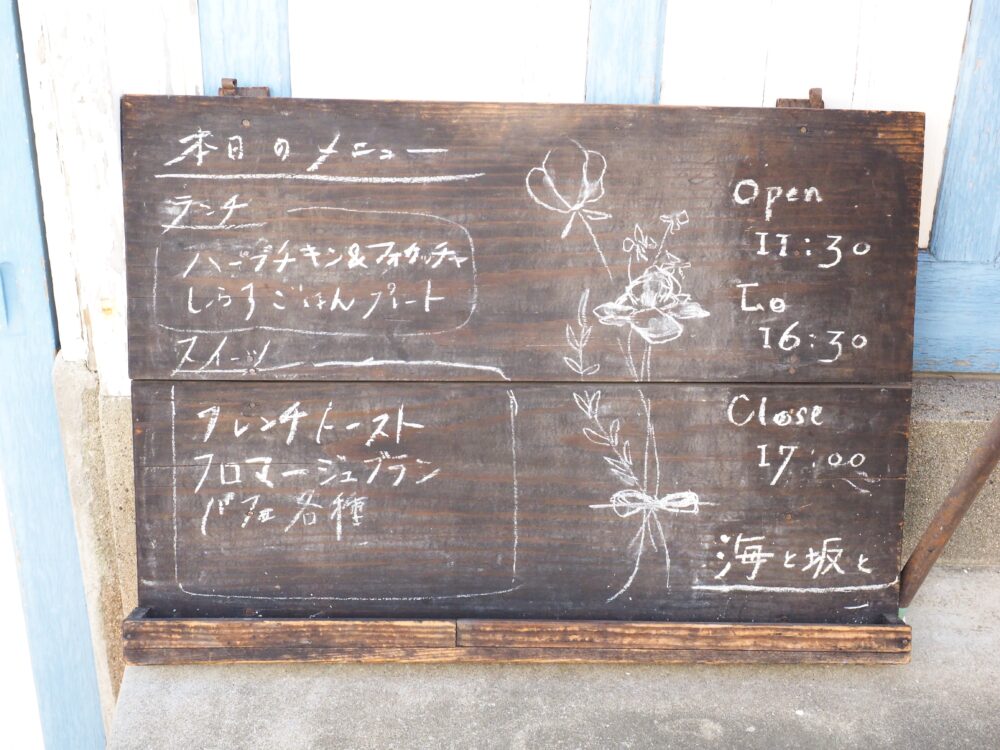 本日のメニュー
ランチ
ハーブチキン&フォカッチャ
しらすごはんプレート
スイーツ
フレンチトースト
フロマージュブラン
パフェ各種
Open
11:30
Lo
16:30
Close
17:00
海と坂と